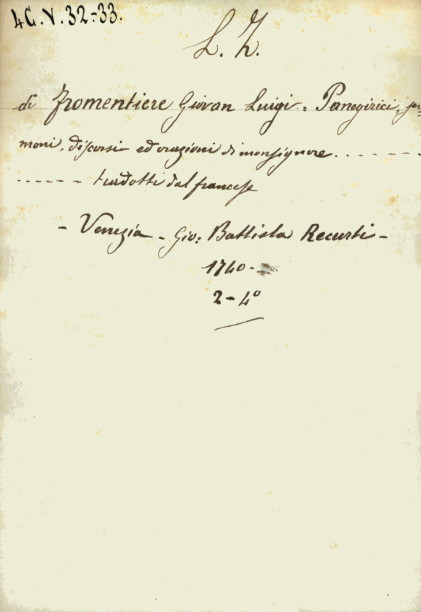 4G.V.32-33.
L. Z.
di Fromentiere Giovan Luigi = Panegirici, ser=
moni, discorsi ed orazioni di monsignore - - - - - -
- - - - - - tradotti dal francese
- Venezia - Gio: Battista Recurti -
1740 -
2 - 4°